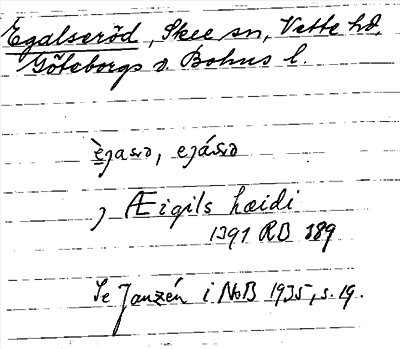 Egalseröd, Skee sn, Vette hd,
Göteborgs o Bohus l.
, Æigils hæidi
1391 RB 389
Se Janzén i NoB 1935, s. 19.